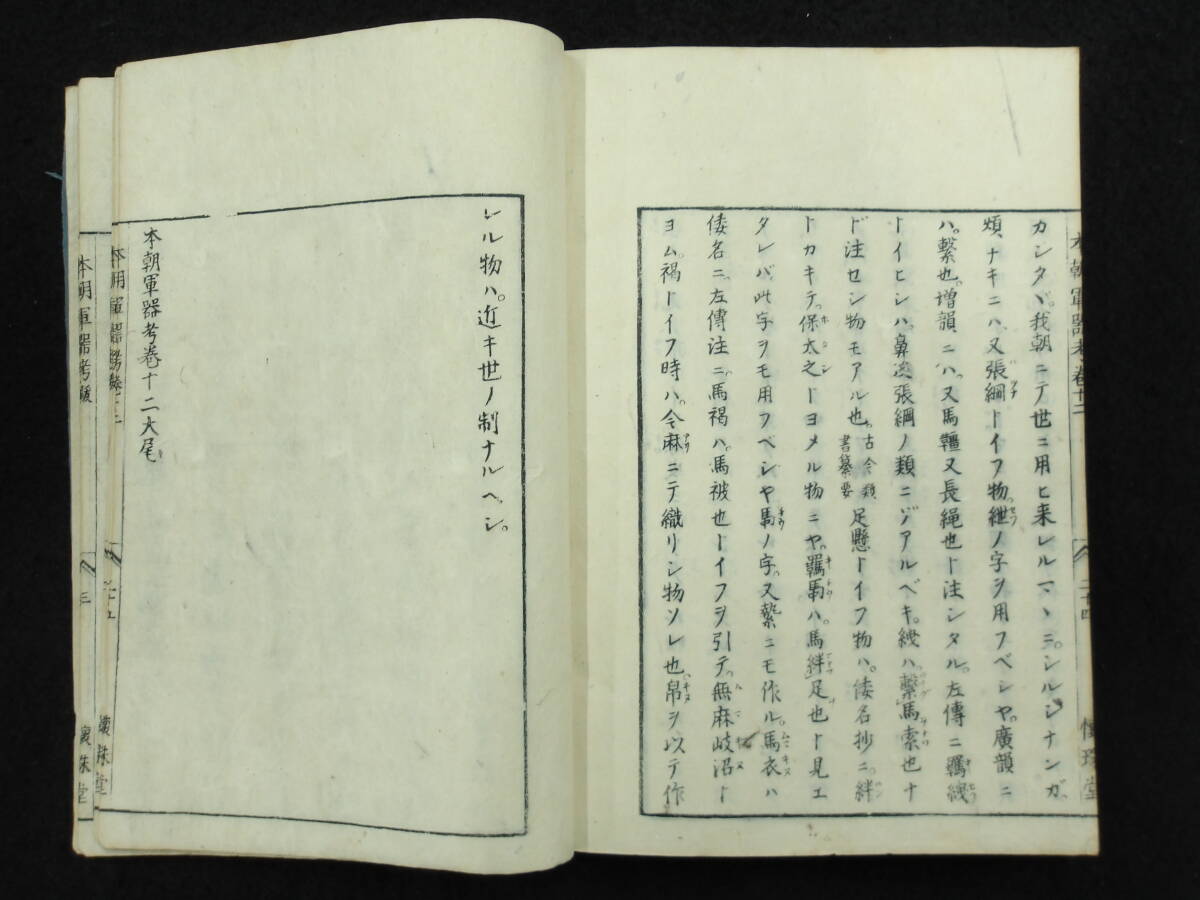 本朝軍器考卷十二
二十四
懷珠堂
カシタヾ我朝ニテ世ニ用ヒ来レルマヽニ。シルシナンガ
煩ナキニハ、又張綱トイフ物紲ノ字ヲ用フベシヤ。廣韻ニ
ハ。繫也。増韻ニハ、又馬韁又長縄也ト注シタル。左傳ニ羈紲
トイヒシハ。鼻送張綱ノ類ニゾアルベキ。紲ハ繫馬索也ナ
ド注セシ物モアル也。古今類書纂要足懸トイフ物ハ。倭名抄ニ絆
トカキテ。保太之トヨメル物ニヤ。羈馽ハ。馬絆足也ト見エ
タレバ、此字ヲモ用フベシヤ馽ノ字、又縶ニモ作ル。馬衣ハ
倭名ニ、左傳注ニ馬褐ハ。馬被也トイフヲ引テ。無麻岐沼ト
ヨム。褐トイフ時ハ。今麻ニテ織リシ物ソレ也。帛ヲ以テ作
レル物ハ。近キ世ノ制ナルヘシ。
本朝軍器考卷十二大尾
懷珠堂
三
懷珠堂